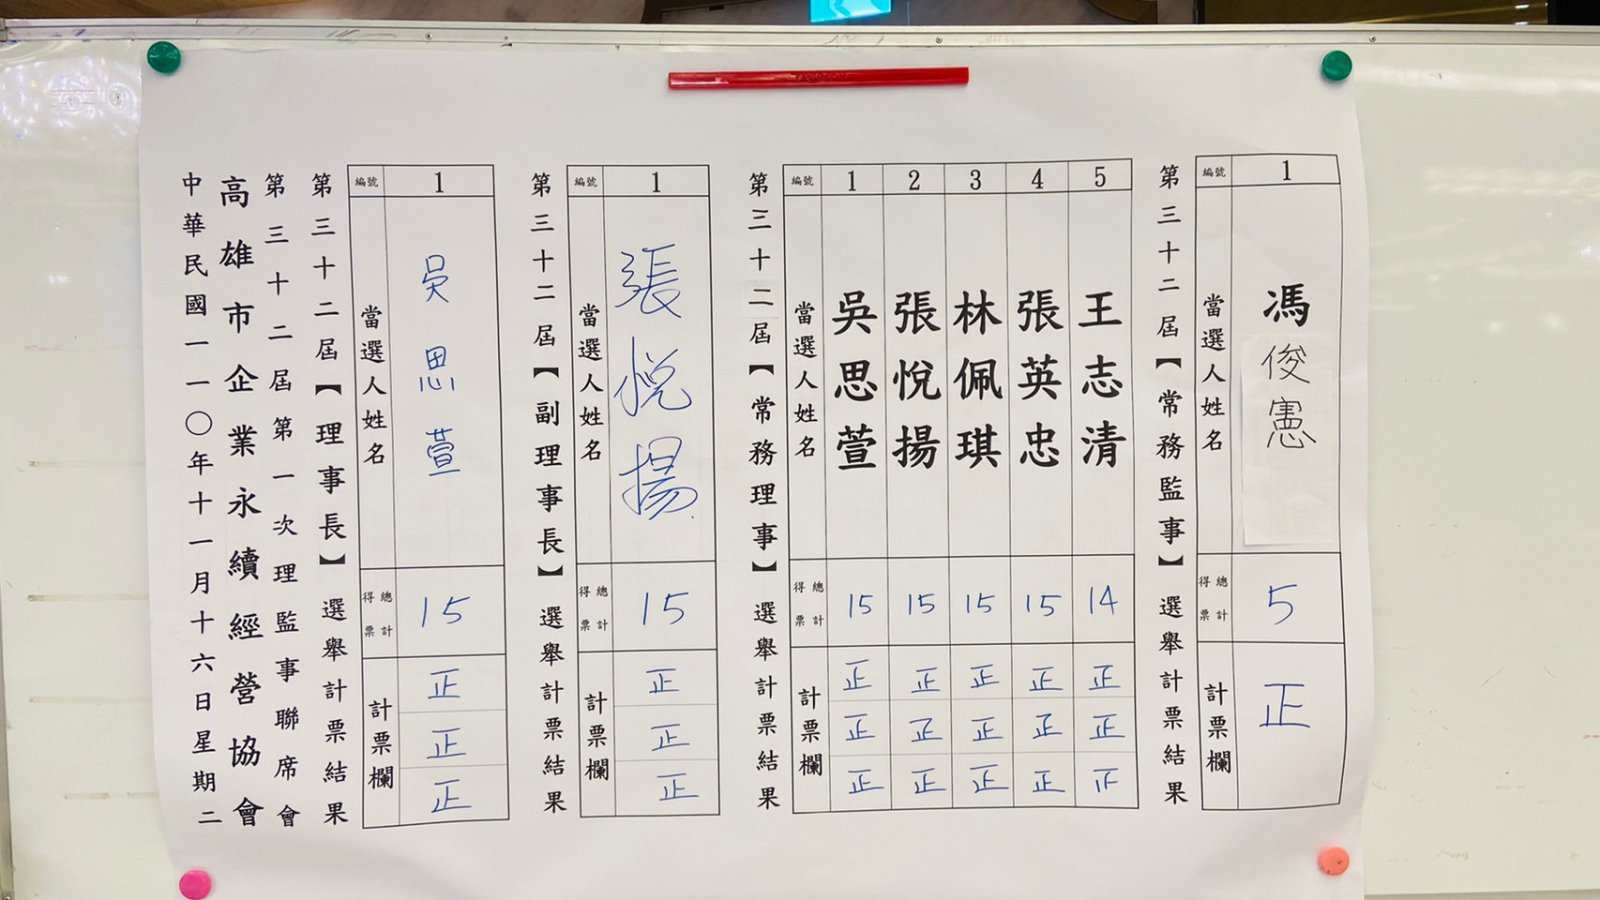 中華民國一一〇年十一月十六日星期二
高雄市企業永續經營協會
第三十二屆第一次理監事聯席會
第三十二屆【理事長】選舉計票結果
編號 1
當選人姓名 吳思萱
得票總計 15
計票欄 正 正 正
第三十二屆【副理事長】選舉計票結果
編號 1
當選人姓名 張悅揚
得票總計 15
計票欄 正 正 正
第三十二屆【常務理事】選舉計票結果
編號 1 2 3 4 5
當選人姓名 吳思萱 張悅揚 林佩琪 張英忠 王志清
得票總計 15 15 15 15 14
計票欄 正 正 正 正 正
正 正 正 正 正
正 正 正 正 𤴓
第三十二屆【常務監事】選舉計票結果
編號 1
當選人姓名 馮俊憲
得票總計 5
計票欄 正